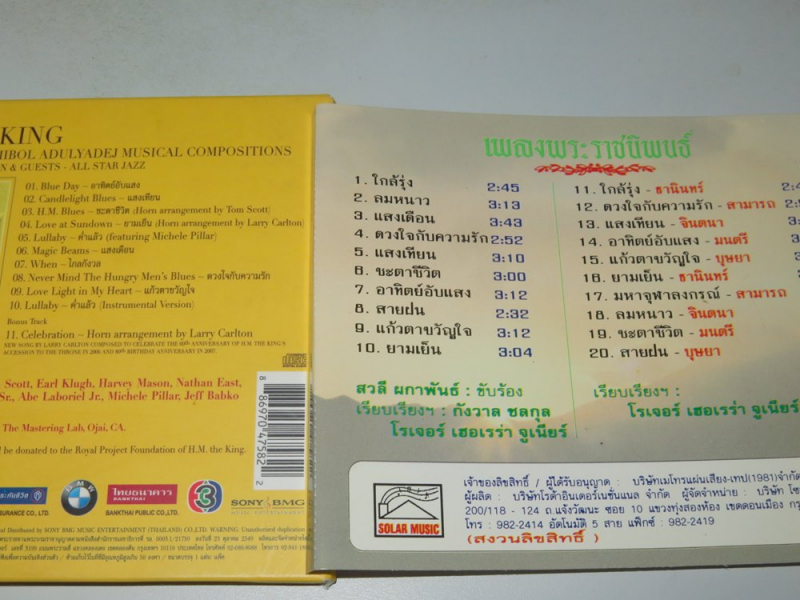 KING
HIBOL ADULYADEJ MUSICAL COMPOSITIONS
N & GUESTS - ALL STAR JAZZ
01. Blue Day – อาทิตย์อับแสง
02. Candlelight Blues – แสงเทียน
03. H.M. Blues – ชะตาชีวิต (Horn arrangement by Tom Scott)
04. Love at Sundown – ยามเย็น (Horn arrangement by Larry Carlton)
05. Lullaby – ค่ำแล้ว (featuring Michele Pillar)
06. Magic Beams – แสงเดือน
07. When – ไกลกังวล
08. Never Mind The Hungry Men's Blues – ดวงใจกับความรัก
09. Love Light in My Heart – แก้วตาขวัญใจ
10. Lullaby – ค่ำแล้ว (Instrumental Version)
Bonus Track
11. Celebration – Horn arrangement by Larry Carlton
NEW SONG BY LARRY CARLTON COMPOSED TO CELEBRATE THE 60th ANNIVERSARY OF H.M. THE KING'S
ACCESSION TO THE THRONE IN 2006 AND 80th BIRTHDAY ANNIVERSARY IN 2007.
Scott, Earl Klugh, Harvey Mason, Nathan East,
Sr., Abe Laboriel Jr., Michele Pillar, Jeff Babko
The Mastering Lab, Ojai, CA.
be donated to the Royal Project Foundation of H.M. the King.
8 86970 47582 2
BMW
ไทยธนาคาร
BANKTHAI
3
SONY BMG
MUSIC ENTERTAINMENT
SURANCE CO., LTD.
BANKTHAI PUBLIC CO., LTD.
and Distributed by SONY BMG MUSIC ENTERTAINMENT (THAILAND) CO., LTD. WARNING: Unauthorized duplication
เพลงพระราชนิพนธ์
1. ใกล้รุ่ง 2:45
2. ลมหนาว 3:13
3. แสงเดือน 3:43
4. ดวงใจกับความรัก 2:52
5. แสงเทียน 3:10
6. ชะตาชีวิต 3:00
7. อาทิตย์อับแสง 3:12
8. สายฝน 2:32
9. แก้วตาขวัญใจ 3:12
10. ยามเย็น 3:04
สวลี ผกาพันธ์ : ขับร้อง
เรียบเรียงฯ : กังวาล ชลกุล
โรเจอร์ เฮอเรร่า จูเนียร์
11. ใกล้รุ่ง - ธานินทร์ 2:4
12. ดวงใจกับความรัก - สามารถ
13. แสงเทียน - จินตนา
14. อาทิตย์อับแสง - มนตรี
15. แก้วตาขวัญใจ - บุษยา
16. ยามเย็น - ธานินทร์
17. มหาจุฬาลงกรณ์ - สามารถ
18. ลมหนาว - จินตนา
19. ชะตาชีวิต - มนตรี
20. สายฝน - บุษยา
เรียบเรียงฯ :
โรเจอร์ เฮอเรร่า จูเนียร์
SOLAR MUSIC
เจ้าของลิขสิทธิ์ / ผู้ได้รับอนุญาต : บริษัทเมโทรแผ่นเสียง-เทป(1981)จำกัด
ผู้ผลิต : บริษัทโรต้าอินเตอร์เนชั่นแนล จำกัด ผู้จัดจำหน่าย : บริษัท โซ
200/118 - 124 ถ.แจ้งวัฒนะ ซอย 10 แขวงทุ่งสองห้อง เขตดอนเมือง กรุ
โทร : 982-2414 อัตโนมัติ 5 สาย แฟ็กซ์ : 982-2419
(สงวนลิขสิทธิ์ )